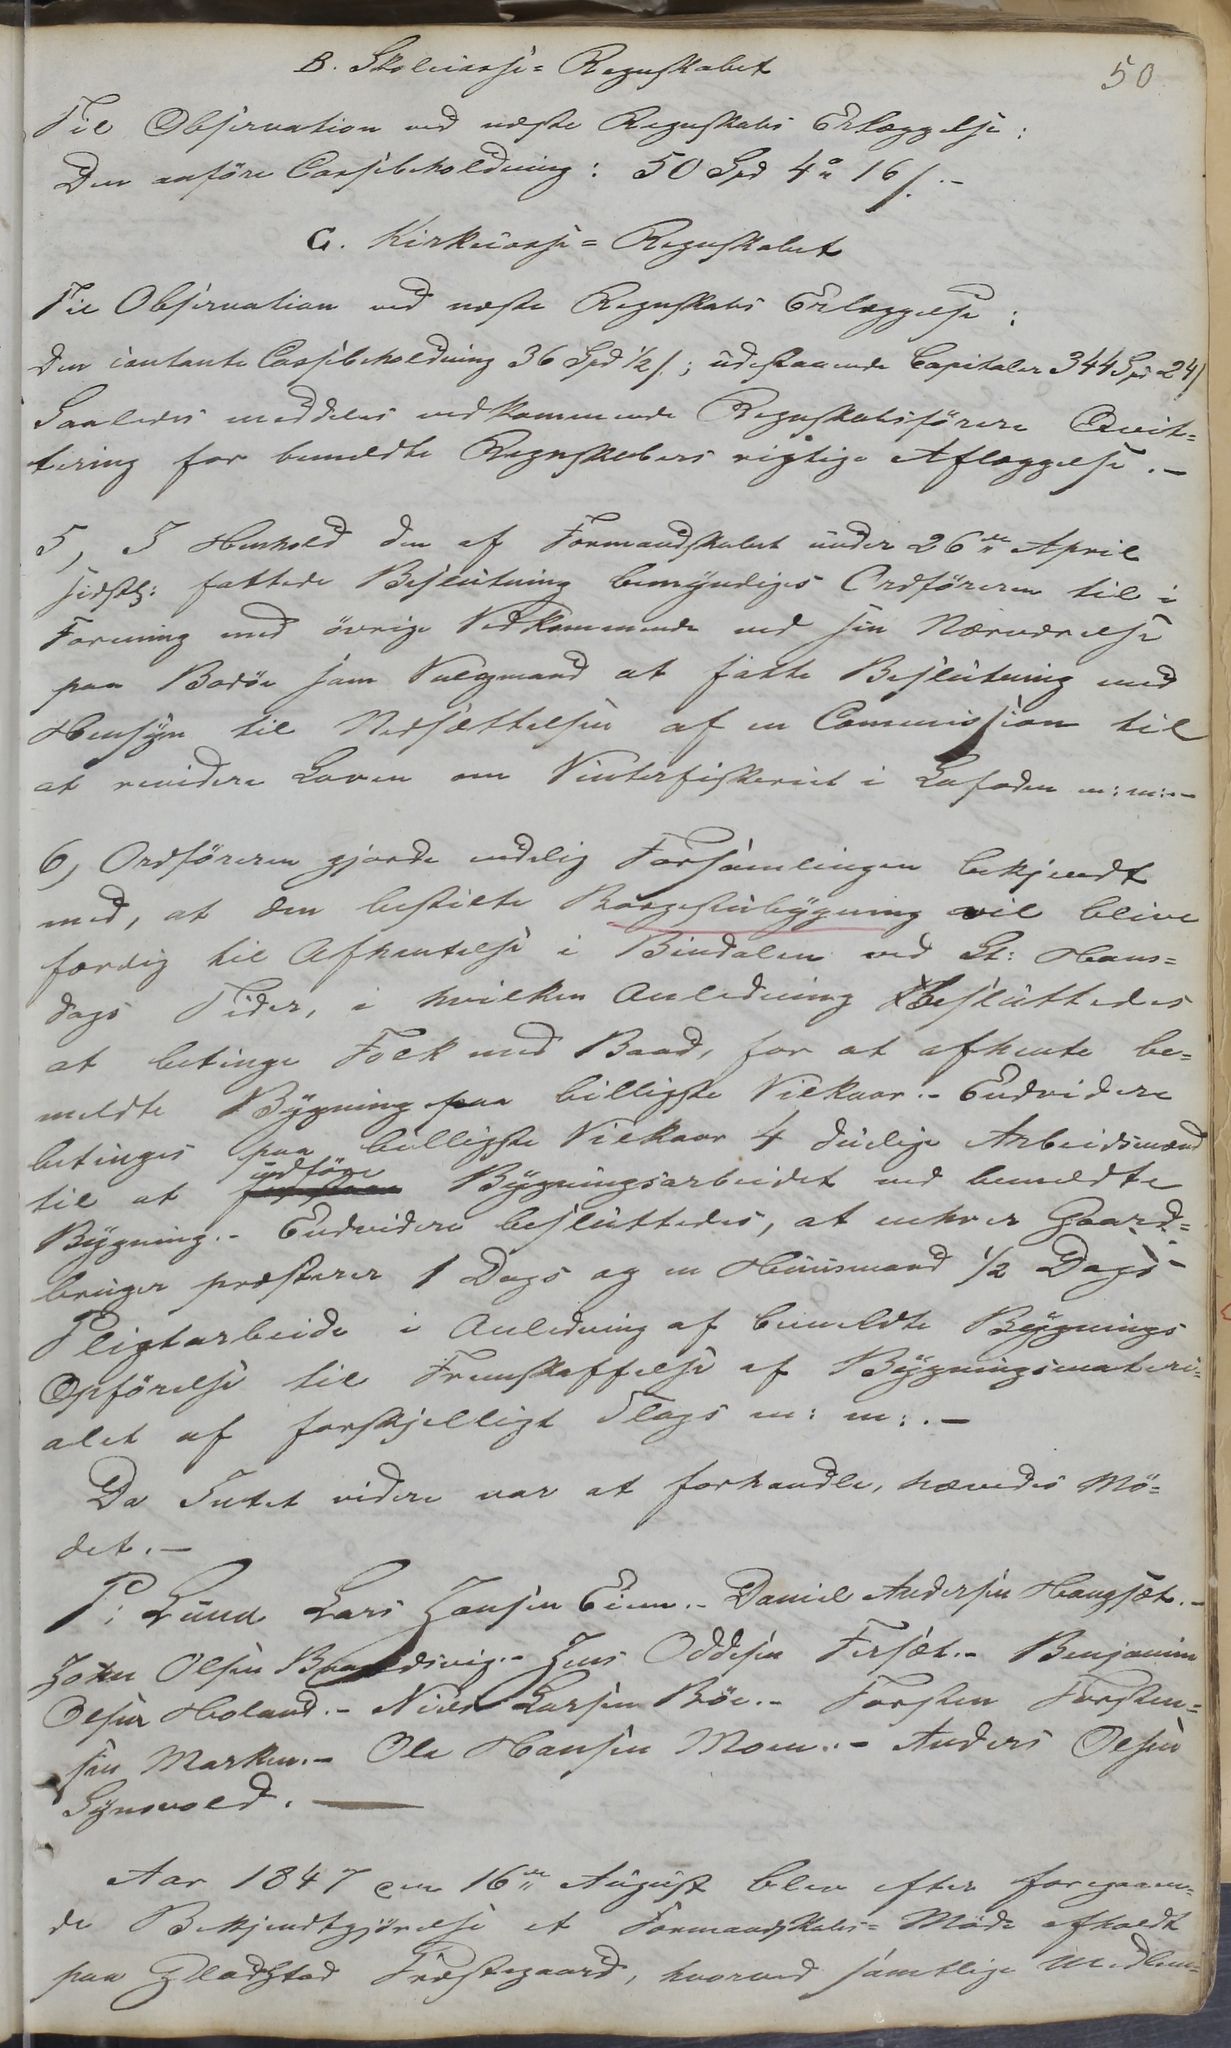 50
B. Skolecasse=Regnskabet
Til Observation ved næste Regnskabs Erlæggelse:
Den anføre Cassebeholdning: 50 Spd 4 " 16 /. -
C. Kirkecasse=Regnskabet
Til Observation ved næste Regnskabs Erlæggelse:
den contante Cassebeholdning 36 Spd 1/2 /. ; udestaaende Capitaler 344 Spd 24 /
Saaledes meddeles vedkommende Regnskabsförere Qvit=
tering for bemeldte Regnskabers rigtige Aflæggelse. -
5, I Henhold den af Formandskabet under 26de April
sidstl: fattede Beslutning bemyndiges Ordföreren til i
Forening med övrige Vedkommende ved sin Nærværelse
paa Bodöe som Valgmand at fatte Beslutning med
Hensyn til Nedsættelsen af en Commission til
at revidere Loven om Vinterfiskeriet i Lofoden m: m: -
6, Ordföreren gjorde endelig Forsamlingen bekjendt
med, at den bestilte Borgestuebygning vil blive
færdig til Afhentelse i Bindalen ved St: Hans=
dags Tider, i hvilken Anledning besluttedes
at betinge Folk med Baad, for at afhente be=
meldte Bygning paa billigste Vilkaar. - Endvidere
betinges paa billigste Vilkaar 4 duelige Arbeidsmænd
til at udföre Bygningsarbeidet ved bemeldte
Bygning. - Endvidere besluttedes, at enhver Gaard=
bruger præsterer 1 Dags og en Huusmand 1/2 Dags
Pligtarbeide i Anledning af bemeldte Bygnings
Opförelse til Fremskaffelse af Bygningsmateri=
alet af forskjelligt Slags m: m: . -
Da Intet videre var at forhandle, hævedes Mö=
det. -
P: Lund Lars Hansen Eien. - Daniel Andersen Haugsæt. -
John Olsen Brandsvig. - Jens Oddesen Fersæt. - Benjamin
Olsen Holand. - Niels Larsen Böe. - Torsten Torsten=
sen Marken. - Ole Hansen Moen. - Anders Olsen
Synsvold. -
Aar 1847 den 16de August blev efter foregaaen=
de Bekjendtgjörelse et Formandskabs=Möde afholdt
paa Gladstad Præstegaard, hvorved samtlige Medlem=